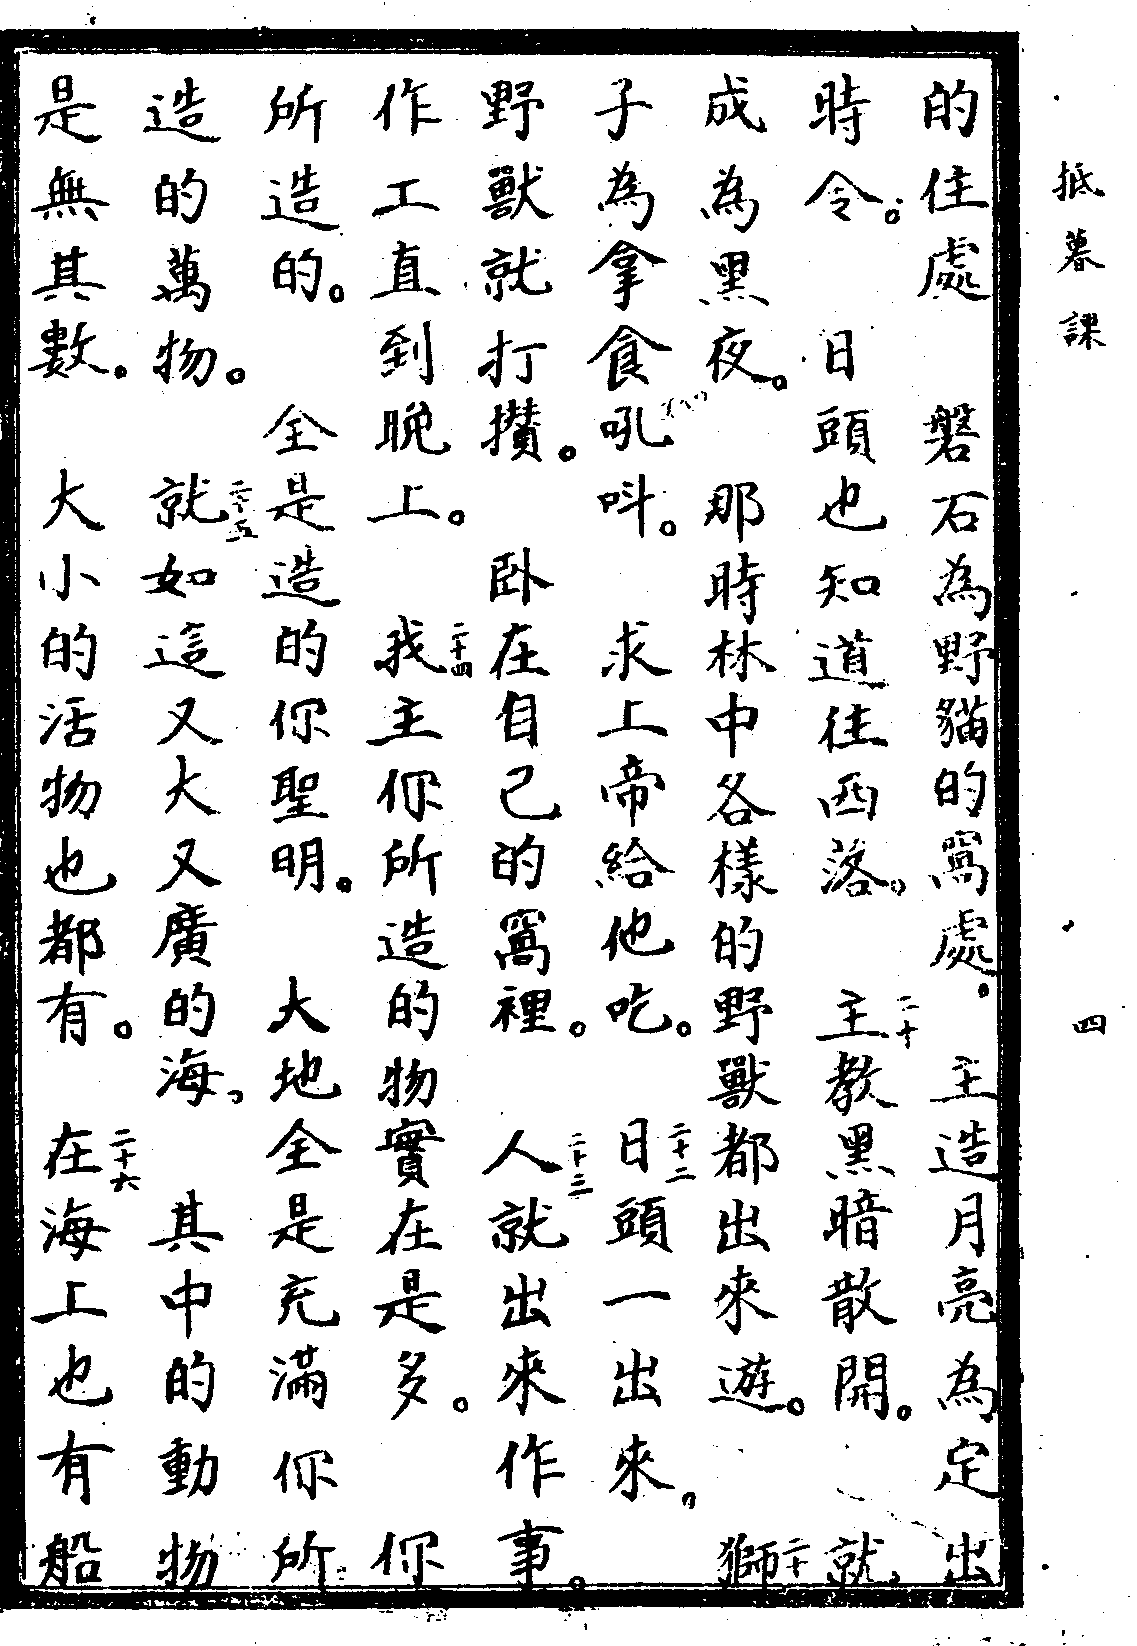 抵暮課 四
的住處 磐石為野貓的窩處。 主造月亮為定出
時令。 日頭也知道往西落。 二十主教黑暗散開。 就
成為黑夜。 那時林中各樣的野獸都出來遊。 二十一獅
子為拿食吼叫。 求上帝給他吃。 二十二日頭一出來。
野獸就打攢。 卧在自己的窩裡。 二十三人就出來作事。
作工直到晚上。 二十四我主你所造的物實在是多。 你
所造的。 全是造的你聖明。 大地全是充滿你所
造的萬物。 二十五就如這又大又廣的海、 其中的動物
是無其數。 大小的活物也都有。 二十六在海上也有船